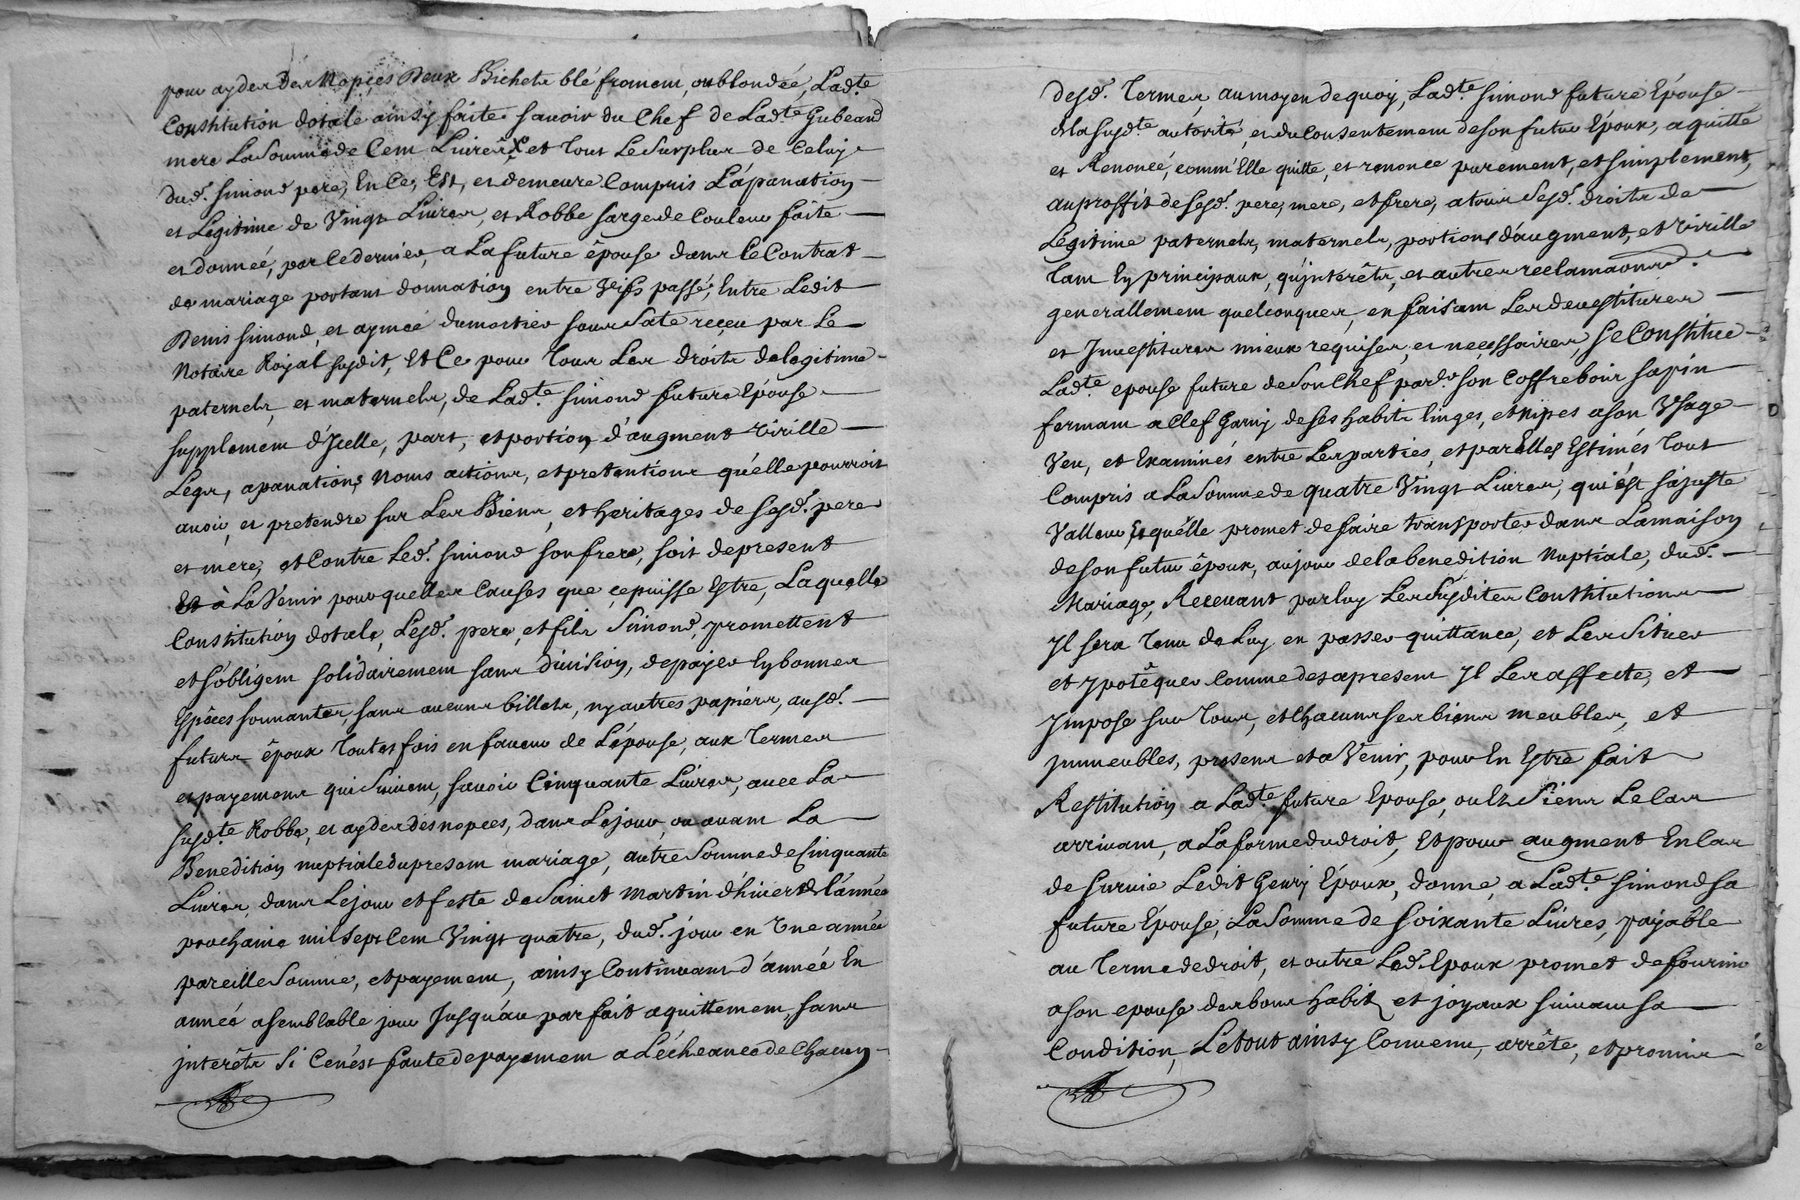 pour ayder des Nopces Deux Bichets blé froment, ou blondée, Lad.te
Constitution dotale ainsy faite savoir du Chef de Lad.te Gubeand
mere La Somme de Cent Livres x et tout Le Surplus de Celuy
dud. Simond pere, En Ce, Est, et demeure Compris L'apanation
et Légitime de Vingt Livres, et Robbe sarge de Couleur faite
et donnée, par Ce dernier, a La future épouse dans Le Contrat
de mariage portant donnation entre Vifs passé, Entre Ledit
Denis Simond, et aymée dumortier sous date reçeu par Le
Notaire Royal susdit, Et Ce pour tous Les droits de legitime
paternels, et maternels, de Lad.te Simond future Epouse
supplement d'Icelle, part, et portion d'augment virille
Legs, apanations Noms actions, et pretentions qu'elle pourroit
avoir, et pretendre sur Les Biens, et heritages de sesd. pere
et mere, et Contre Led. Simond son frere, soit de present
Et à La Venir pour quelles Causes que çe puisse Estre, Laquelle
Constitution dotale, Lesd. pere, et fils Simond, promettent
et s'obligent solidairement sans division, de payer En bonnes
Espèces sonnantes, sans aucuns billets, ny autres papiers, ausd.
futurs époux Toutes fois en faveur de L'épouse, aux Termes
et payements qui Suivent, savoir Cinquante Livres, avec La
susd.te Robbe, et ayder des nopces, dans Le jour, ou avant La
Benedition nuptiale du present mariage, autre Somme de Cinquante
Livres, dans Le jour et feste de Sainct Martin d'hivert de l'année
prochaine mil Sept Cent Vingt quatre, dud. jour en Une année
pareille Somme, et payement, ainsy Continuant d'année En
année a semblable jour Jusqu'au parfait aquittement, sans
interêts Si Ce n'est faute de payement a L'écheance de Chacun
desd. Termes, au moyen de quoy, Lad.te Simond future Epouse
de la susd.te autorité, et du Consentement de son futur Epoux, a quitté
et Renoncé, comm'Elle quitte, et renonce purement, et simplement,
au proffit de sesd. pere, mere, et frere, a tous Sesd. droits de
Légitime paternels, maternels, portions d'augment, et virille
Tant En principaux, qu'interêts, et autres reclamaons
generallement quelconques, en faisant Les devestitures
et Investitures mieux requises, et neçessaires, Se Constitue
Lad.te epouse future de Son Chef par.r son Coffre bois sapin
fermant a Clef Garny de ses habits linges, et nipes a son Usage
Veu, et Examinés entre Les parties, et par Elles Estimés tout
Compris a La Somme de quatre Vingt Livres, qui est sa juste
Valleur Et qu'elle promet de faire transporter dans La maison
de son futur époux, au jour de la benedition Nuptiale, dud.
Mariage, Recevant par luy Les susdites Constitutions
Il sera tenu de Luy en passer quittance, et Les Situer
et ypotéquer Comme des a present Il Les affecte, et
Impose sur tous, et Chacuns ses biens meubles, et
jmmeubles, presens et a Venir, pour En Estre fait
Restitution a Lad.te future Epouse, ou Es Siens Le Cas
arrivant, a La forme du droit, Et pour augment En Cas
de survie Ledit Genry Époux, donne, a Lad.te Simond sa
future Epouse, La Somme de soixante Livres, payable
au Terme de droit, et outre Led. Epoux promet de fournir
a son epouse des bons habits et joyaux suivant sa
Condition, Le tout ainsy Convenu, arrêté, et promis